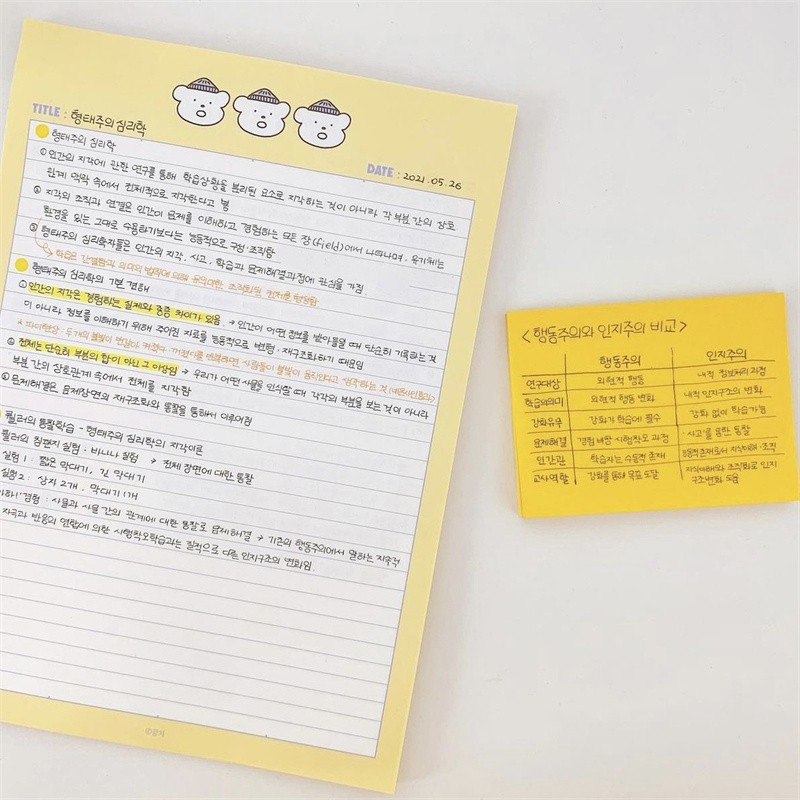 TITLE : 형태주의 심리학
DATE : 2021.05.26
형태주의 심리학
① 인간의 지각에 관한 연구를 통해 학습상황을 분리된 요소로 지각하는 것이 아니라 각 부분 간의 상호
관계 맥락 속에서 전체적으로 지각한다고 봄
② 지각의 조직과 연결은 인간이 문제를 이해하고 경험하는 모든 장(field)에서 나타나며, 유기체는
환경을 있는 그대로 수용하기보다는 능동적으로 구성·조직함
③ 형태주의 심리학자들은 인간의 지각, 사고, 학습과 문제해결과정에 관심을 가짐.
학습은 간결함과 의미의 법칙에 의해 조직화된 전체를 형성함
형태주의 심리학의 기본 견해
① 인간의 지각은 경험하는 실제와 종종 차이가 있음. → 인간이 어떤 정보를 받아들일 때 단순히 기록하는 것
이 아니라 정보를 이해하기 위해 주어진 자료를 능동적으로 변형·재구조화하기 때문임
* 파이현상 : 두개의 불빛이 번갈아 켜졌다 꺼졌다를 반복하면 사람들이 불빛이 움직인다고 생각하는 것 (네온사인효과)
② 전체는 단순히 부분의 합이 아닌 그 이상임 → 우리가 어떤 사물을 인식할 때 각각의 부분을 보는 것이 아니라
부분 간의 상호관계 속에서 전체를 지각함
③ 문제해결은 문제장면의 재구조화와 통찰을 통해서 이루어짐
퀼러의 통찰학습 - 형태주의 심리학의 지각이론
퀼러의 침팬지 실험 : 바나나 실험 → 전체 장면에 대한 통찰
실험 1 : 짧은 막대기, 긴 막대기
실험 2 : 상자 2개, 막대기 1개
아하! 경험 : 사물과 사물 간의 관계에 대한 통찰로 문제해결 → 기존의 행동주의에서 말하는 지속적
자극과 반응의 연합에 의한 시행착오학습과는 질적으로 다른 인지구조의 변화임.
<행동주의와 인지주의 비교>
행동주의 인지주의
연구대상 외현적 행동 내적 정보처리 과정
학습의의미 외현적 행동 변화 내적 인지구조의 변화
강화유무 강화가 학습에 필수 강화 없이 학습가능
문제해결 경험 바탕 시행착오 과정 '사고'를 통한 통찰
인간관 학습자는 수동적 존재 능동적존재로서 지식이해·조직
교사역할 강화를 통해 목표 도달 지식이해와 조직화로 인지
구조변화 도움